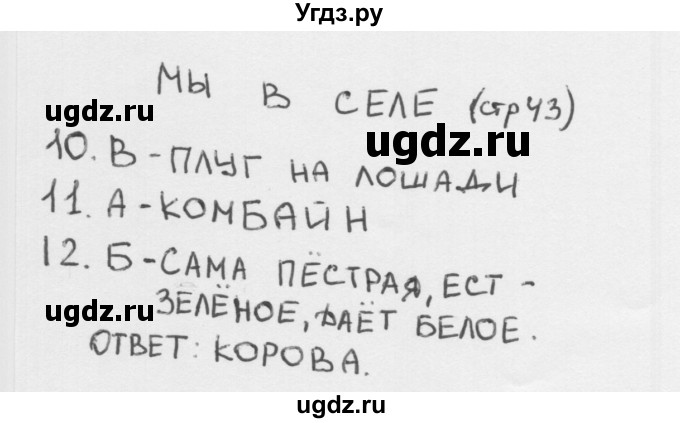 Угдз.ру
МЫ В СЕЛЕ (стр 43)
ugdz.ru
ugdz.ru
10. В - ПЛУГ НА ЛОШАДИ
11. А - КОМБАЙН
12. Б - САМА ПЁСТРАЯ, ЕСТ -
ЗЕЛЁНОЕ, ДАЁТ БЕЛОЕ.
ugdz.ru
ОТВЕТ: КОРОВА.
ugdz.ru